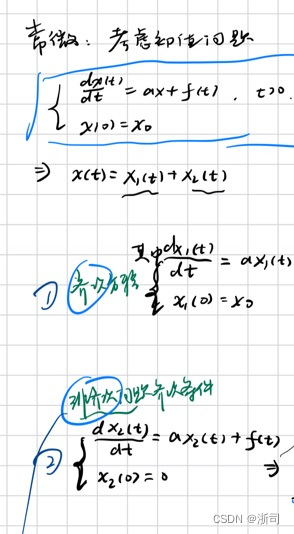 常微：考虑初值问题
{ dx(t)/dt = ax + f(t) . t>0.
x(0) = x₀
⇒ x(t) = x₁(t) + x₂(t)
其中 dx₁(t)/dt = ax₁(t)
① 齐次方程 { x₁(0) = x₀
非齐次问题齐次条件
② { dx₂(t)/dt = ax₂(t) + f(t) ⇒
x₂(0) = 0
CSDN @浙司